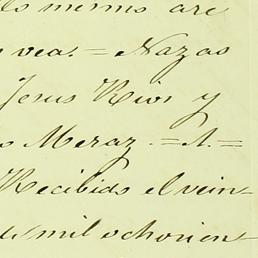 ls mismo are
vea. = Nazas
Jesus Rios y
s Meraz. = A. =
Recibido el vein-
de mil ochocien-